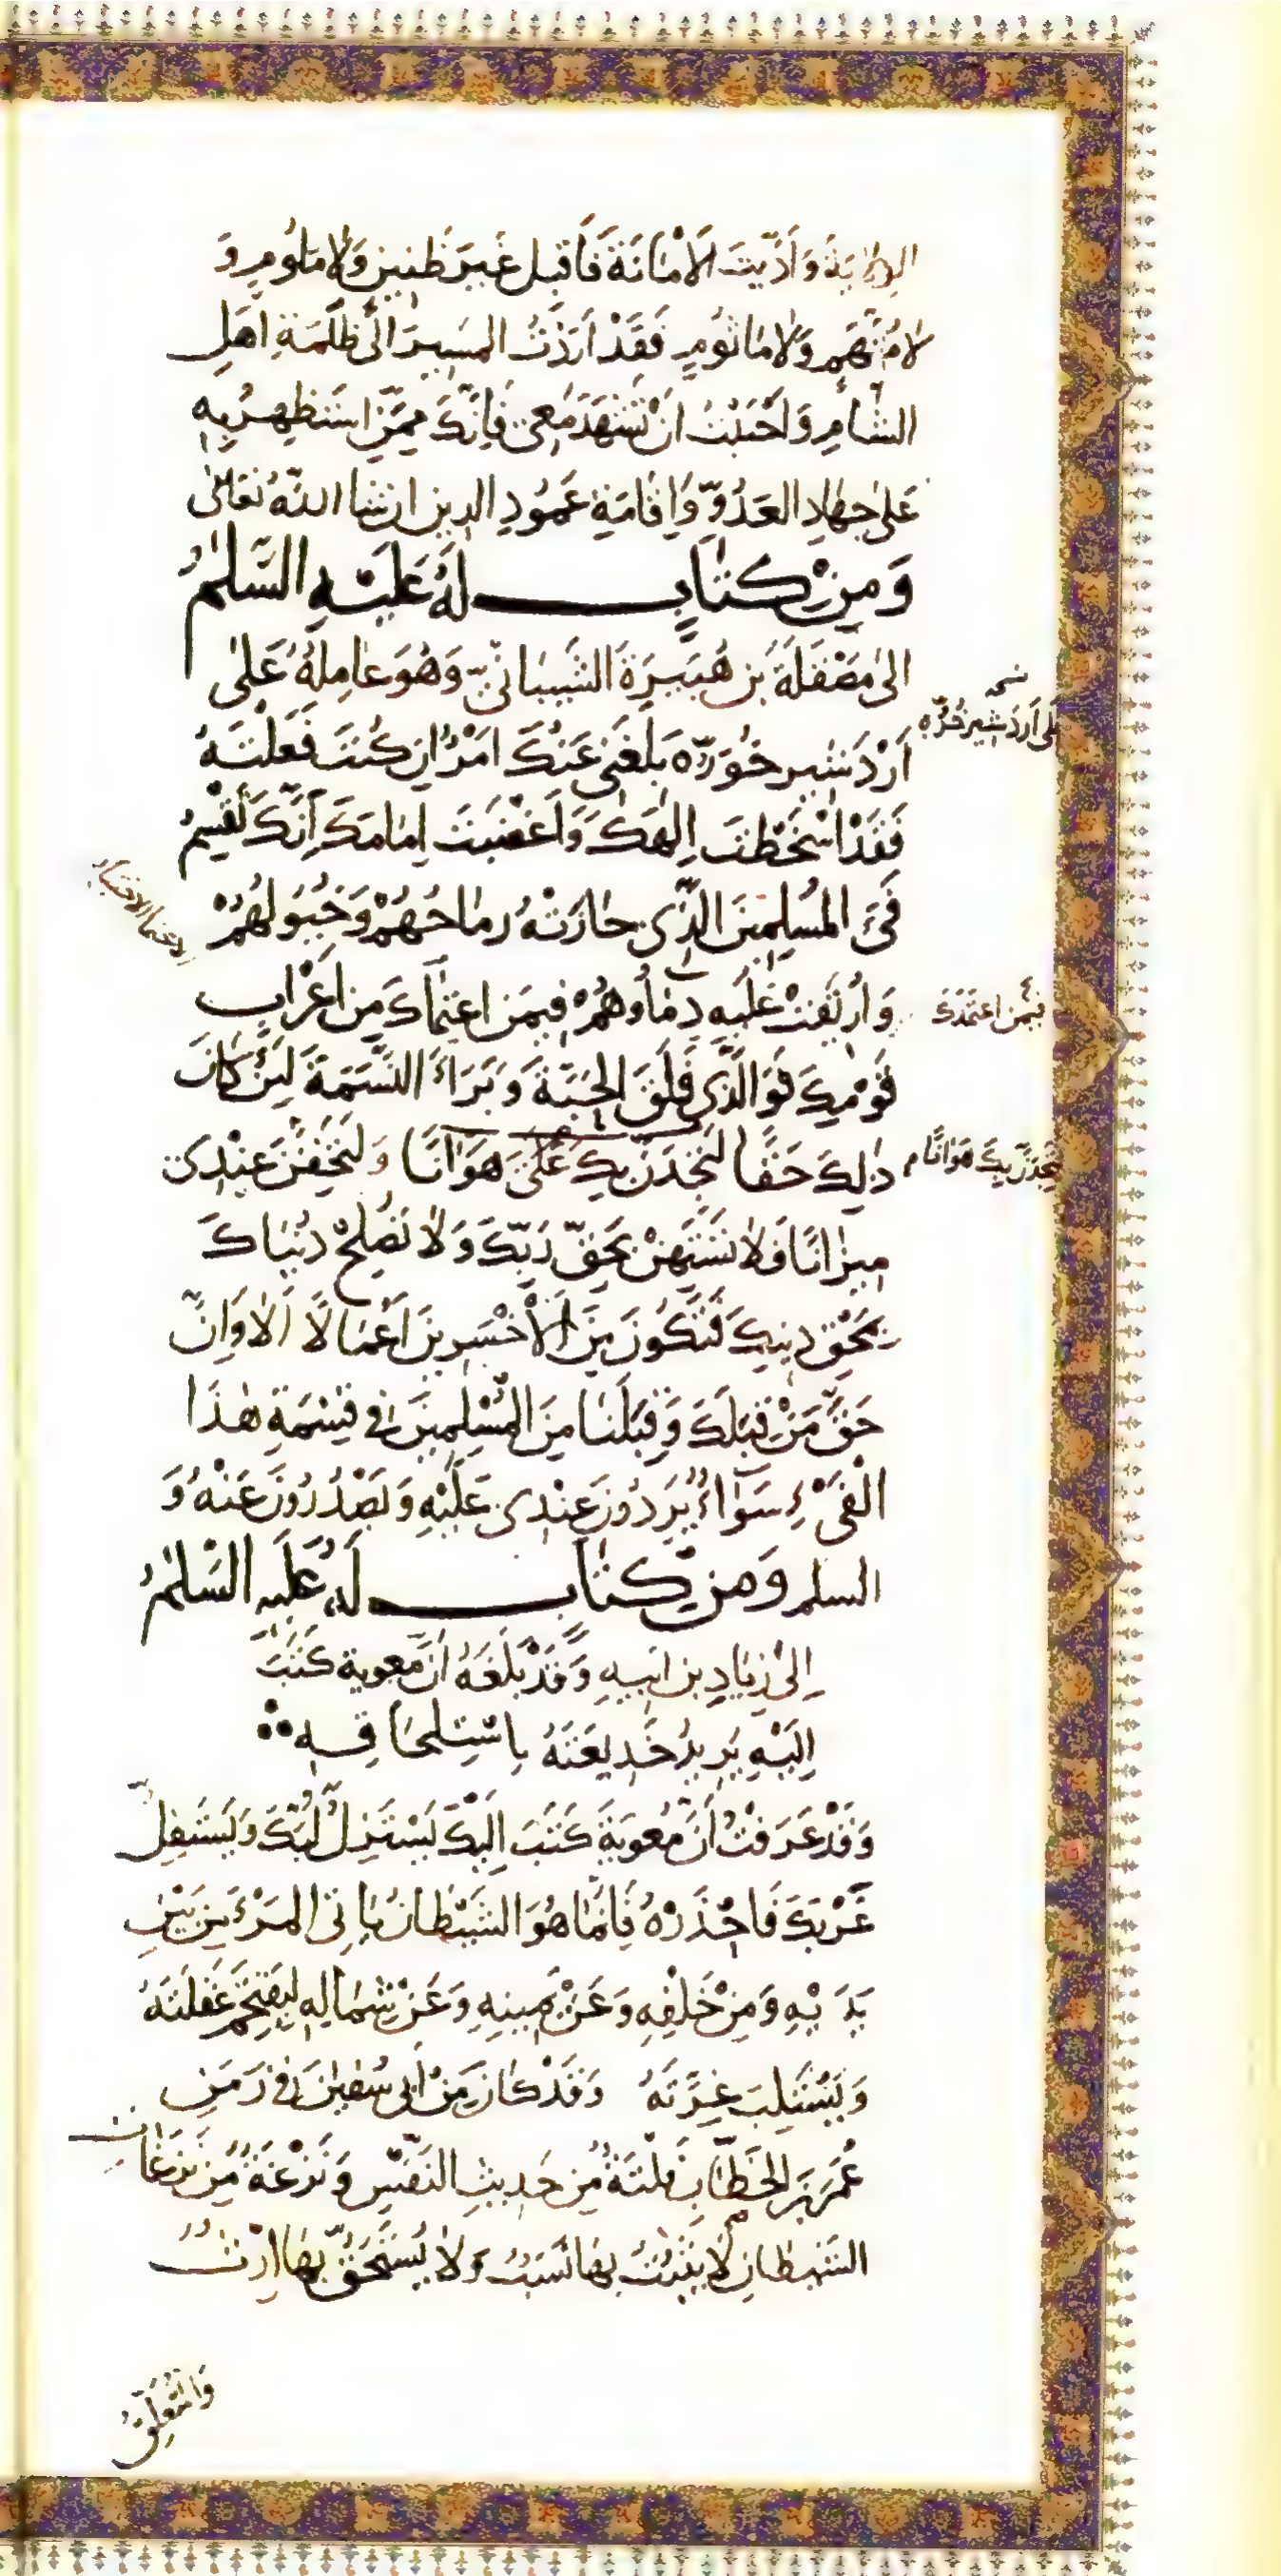 الولاية وَأَدَّيْتَ الْأَمَانَةَ فَأَقْبِلْ غَيْرَ ظَنِينٍ وَلَا مَلُومٍ وَ
لَا مُتَّهَمٍ وَلَا مَأْثُومٍ فَقَدْ أَرَدْتُ الْمَسِيرَ إِلَى ظَلَمَةِ أَهْلِ
الشَّامِ وَأَحْبَبْتُ أَنْ تَشْهَدَ مَعِي فَإِنَّكَ مِمَّنْ اَسْتَظْهِرُ بِهِ
عَلَى جِهَادِ الْعَدُوِّ وَإِقَامَةِ عَمُودِ الدِّينِ إن شا اللَّهُ تَعَالَى
وَمِنْ كِتَابٍ لَهُ عَلَيْهِ السَّلٰمُ
إِلَى مَصْقَلَةَ بْنِ هُبَيْرَةَ الشَّيْبَانِيِّ وَهُوَ عَامِلُهُ عَلَى
نسخه
عَلى أَرْدَشِيرَ خُرَّه
أَرْدَشِيرَ خُوَرَّه بَلَغَنِي عَنْكَ أَمْرٌ إِنْ كُنْتَ فَعَلْتَهُ
فَقَدْ أَسْخَطْتَ إِلٰهَكَ وَأَغْضَبْتَ إِمَامَكَ أَنَّكَ تَقْسِمُ
فَيْءَ الْمُسْلِمِينَ الَّذِي حَازَتْهُ رِمَاحُهُمْ وَخُيُولُهُمْ
الاعتيام الاختيار
وَأُرِيقَتْ عَلَيْهِ دِمَاؤُهُمْ فِيمَنِ اعْتَامَكَ مِنْ أَعْرَابِ
فِيمَنِ اعْتَمَدَكَ
قَوْمِكَ فَوَالَّذِي فَلَقَ الْحَبَّةَ وَبَرَأَ النَّسَمَةَ لَئِنْ كَانَ
ذٰلِكَ حَقًّا لَتَجِدَنَّ بِكَ عَلَيَّ هَوَانًا وَلَتَخِفَّنَّ عِنْدِي
لَتَجِدَنَّ بِكَ هَوَانًا م
مِيزَانًا فَلَا تَسْتَهِنْ بِحَقِّ رَبِّكَ وَلَا تُصْلِحْ دُنْيَاكَ
بِمَحْقِ دِينِكَ فَتَكُونَ مِنَ الْأَخْسَرِينَ أَعْمَالًا أَلَا وَإِنَّ
حَقَّ مَنْ قِبَلَكَ وَقِبَلَنَا مِنَ الْمُسْلِمِينَ فِي قِسْمَةِ هٰذَا
الْفَيْءِ سَوَاءٌ يَرِدُونَ عِنْدِي عَلَيْهِ وَيَصْدُرُونَ عَنْهُ وَ
السلم وَمِنْ كِتَابٍ لَهُ عَلَيْهِ السَّلٰمُ
إِلَى زِيَادِ بْنِ أَبِيهِ وَقَدْ بَلَغَهُ أَنَّ مُعوية كَتَبَ
إِلَيْهِ يُرِيدُ خَدِيعَتَهُ بِاسْتِلْحَاقِهِ
وَقَدْ عَرَفْتُ أَنَّ مُعٰوِيَةَ كَتَبَ إِلَيْكَ يَسْتَزِلُّ لُبَّكَ وَيَسْتَفِلُّ
غَرْبَكَ فَاحْذَرْهُ فَإِنَّمَا هُوَ الشَّيْطَانُ يَأْتِي الْمَرْءَ مِنْ بَيْنِ
يَدَيْهِ وَمِنْ خَلْفِهِ وَعَنْ يَمِينِهِ وَعَنْ شِمَالِهِ لِيَقْتَحِمَ غَفْلَتَهُ
وَيَسْتَلِبَ غِرَّتَهُ وَقَدْ كَانَ مِنْ أَبِي سُفْيٰنَ فِي زَمَنِ
عُمَرَ بْنِ الْخَطَّابِ فَلْتَةٌ مِنْ حَدِيثِ النَّفْسِ وَنَزْغَةٌ مِنْ نَزَغَاتِ
الشَّيْطَانِ لَا يَثْبُتُ بِهَا نَسَبٌ وَلَا يُسْتَحَقُّ بِهَا إِرْثٌ
وَالْمُتَعَلِّقُ